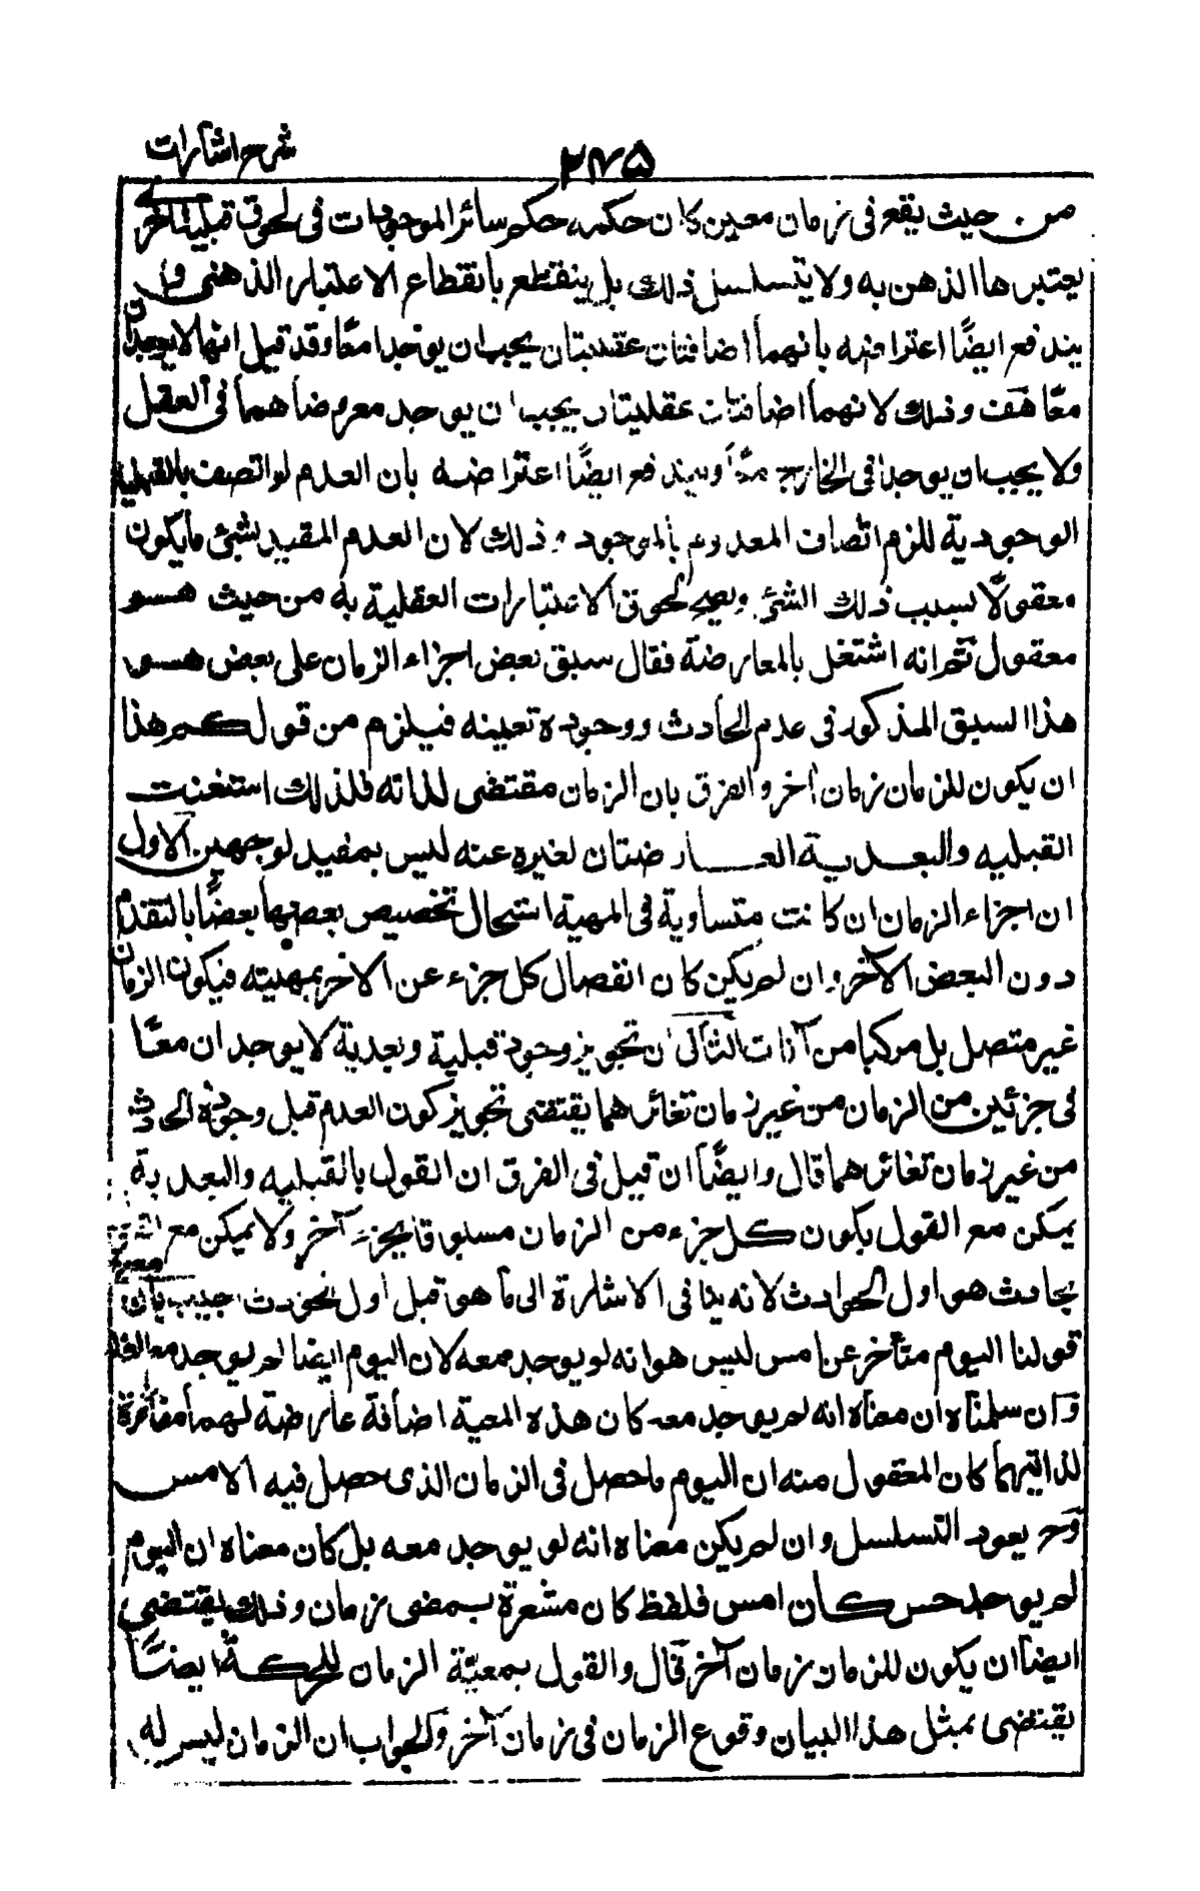 شرح اشارات
٢٧٥
من حيث يقع فى زمان معين كان حكمه حكم سائر الموجودات فى لحوق قبلية اخرى
يعتبرها الذهن به ولا يتسلسل ذلك بل ينقطع بانقطاع الاعتبار الذهنى و
يندفع ايضًا اعتراضه بانهما اضافتان عقليتان يجب ان يوجدا معًا وقد قيل انهما لا يوجدان
معًا هف وذلك لانهما اضافتان عقليتان يجب ان يوجد معروضاهما فى العقل
ولا يجب ان يوجدا فى الخارج معًا ويندفع ايضًا اعتراضه بان العدم لو اتصف بالقبلية
الوجودية للزم اتصاف المعدوم بالموجود وذلك لان العدم المقيد بشئ ما يكون
معقولًا بسبب ذلك الشئ ويصح لحوق الاعتبارات العقلية به من حيث هو
معقول ثم انه اشتغل بالمعارضة فقال سبق بعض اجزاء الزمان على بعض هو
هذا السبق المذكور فى عدم الحادث ووجوده تعينه فيلزم من قولكم هذا
ان يكون للزمان زمان آخر والفرق بان الزمان مقتضى لذاته فلذلك استغنت
القبليه والبعدية العارضتان لغيره عنه ليس بمفيد لوجهين الاول
ان اجزاء الزمان ان كانت متساوية فى المهية استحال تخصيص بعضها بعضًا بالتقدم
دون البعض الآخر وان لم يكن كان انفصال كل جزء عن الآخر بمهيته فيكون الزمان
غير متصل بل مركبا من آنات الثانى ان تجويز وجود قبلية وبعدية لا يوجدان معًا
فى جزئين من الزمان من غير زمان تغائرهما يقتضى تجويز كون العدم قبل وجود الحادث
من غير زمان تغائرهما قال وايضًا ان قيل فى الفرق ان القول بالقبليه والبعدية
يمكن مع القول بكون كل جزء من الزمان مسبوقا بجزء آخر ولا يمكن مع
بحادث هو اول الحوادث لانه ينافى الاشارة الى ما هو قبل اول الحوادث اجيب بان
قولنا اليوم متأخر عن امس ليس هو انه لم يوجد معه لان اليوم ايضا لم يوجد مع الغد
وان سلمناه ان معناه انه لم يوجد معه كان هذه المعية اضافة عارضة لهما مغائرة
لذاتيهما كان المعقول منه ان اليوم ما حصل فى الزمان الذى حصل فيه الامس
وح يعود التسلسل وان لم يكن معناه انه لم يوجد معه بل كان معناه ان اليوم
لم يوجد حين كان امس فلفظ كان مشعرة بمضى زمان وذلك يقتضى
ايضا ان يكون للزمان زمان آخر قال والقول بمعيّة الزمان للحركة ايضًا
يقتضى بمثل هذا البيان وقوع الزمان فى زمان آخر والجواب ان الزمان ليس له